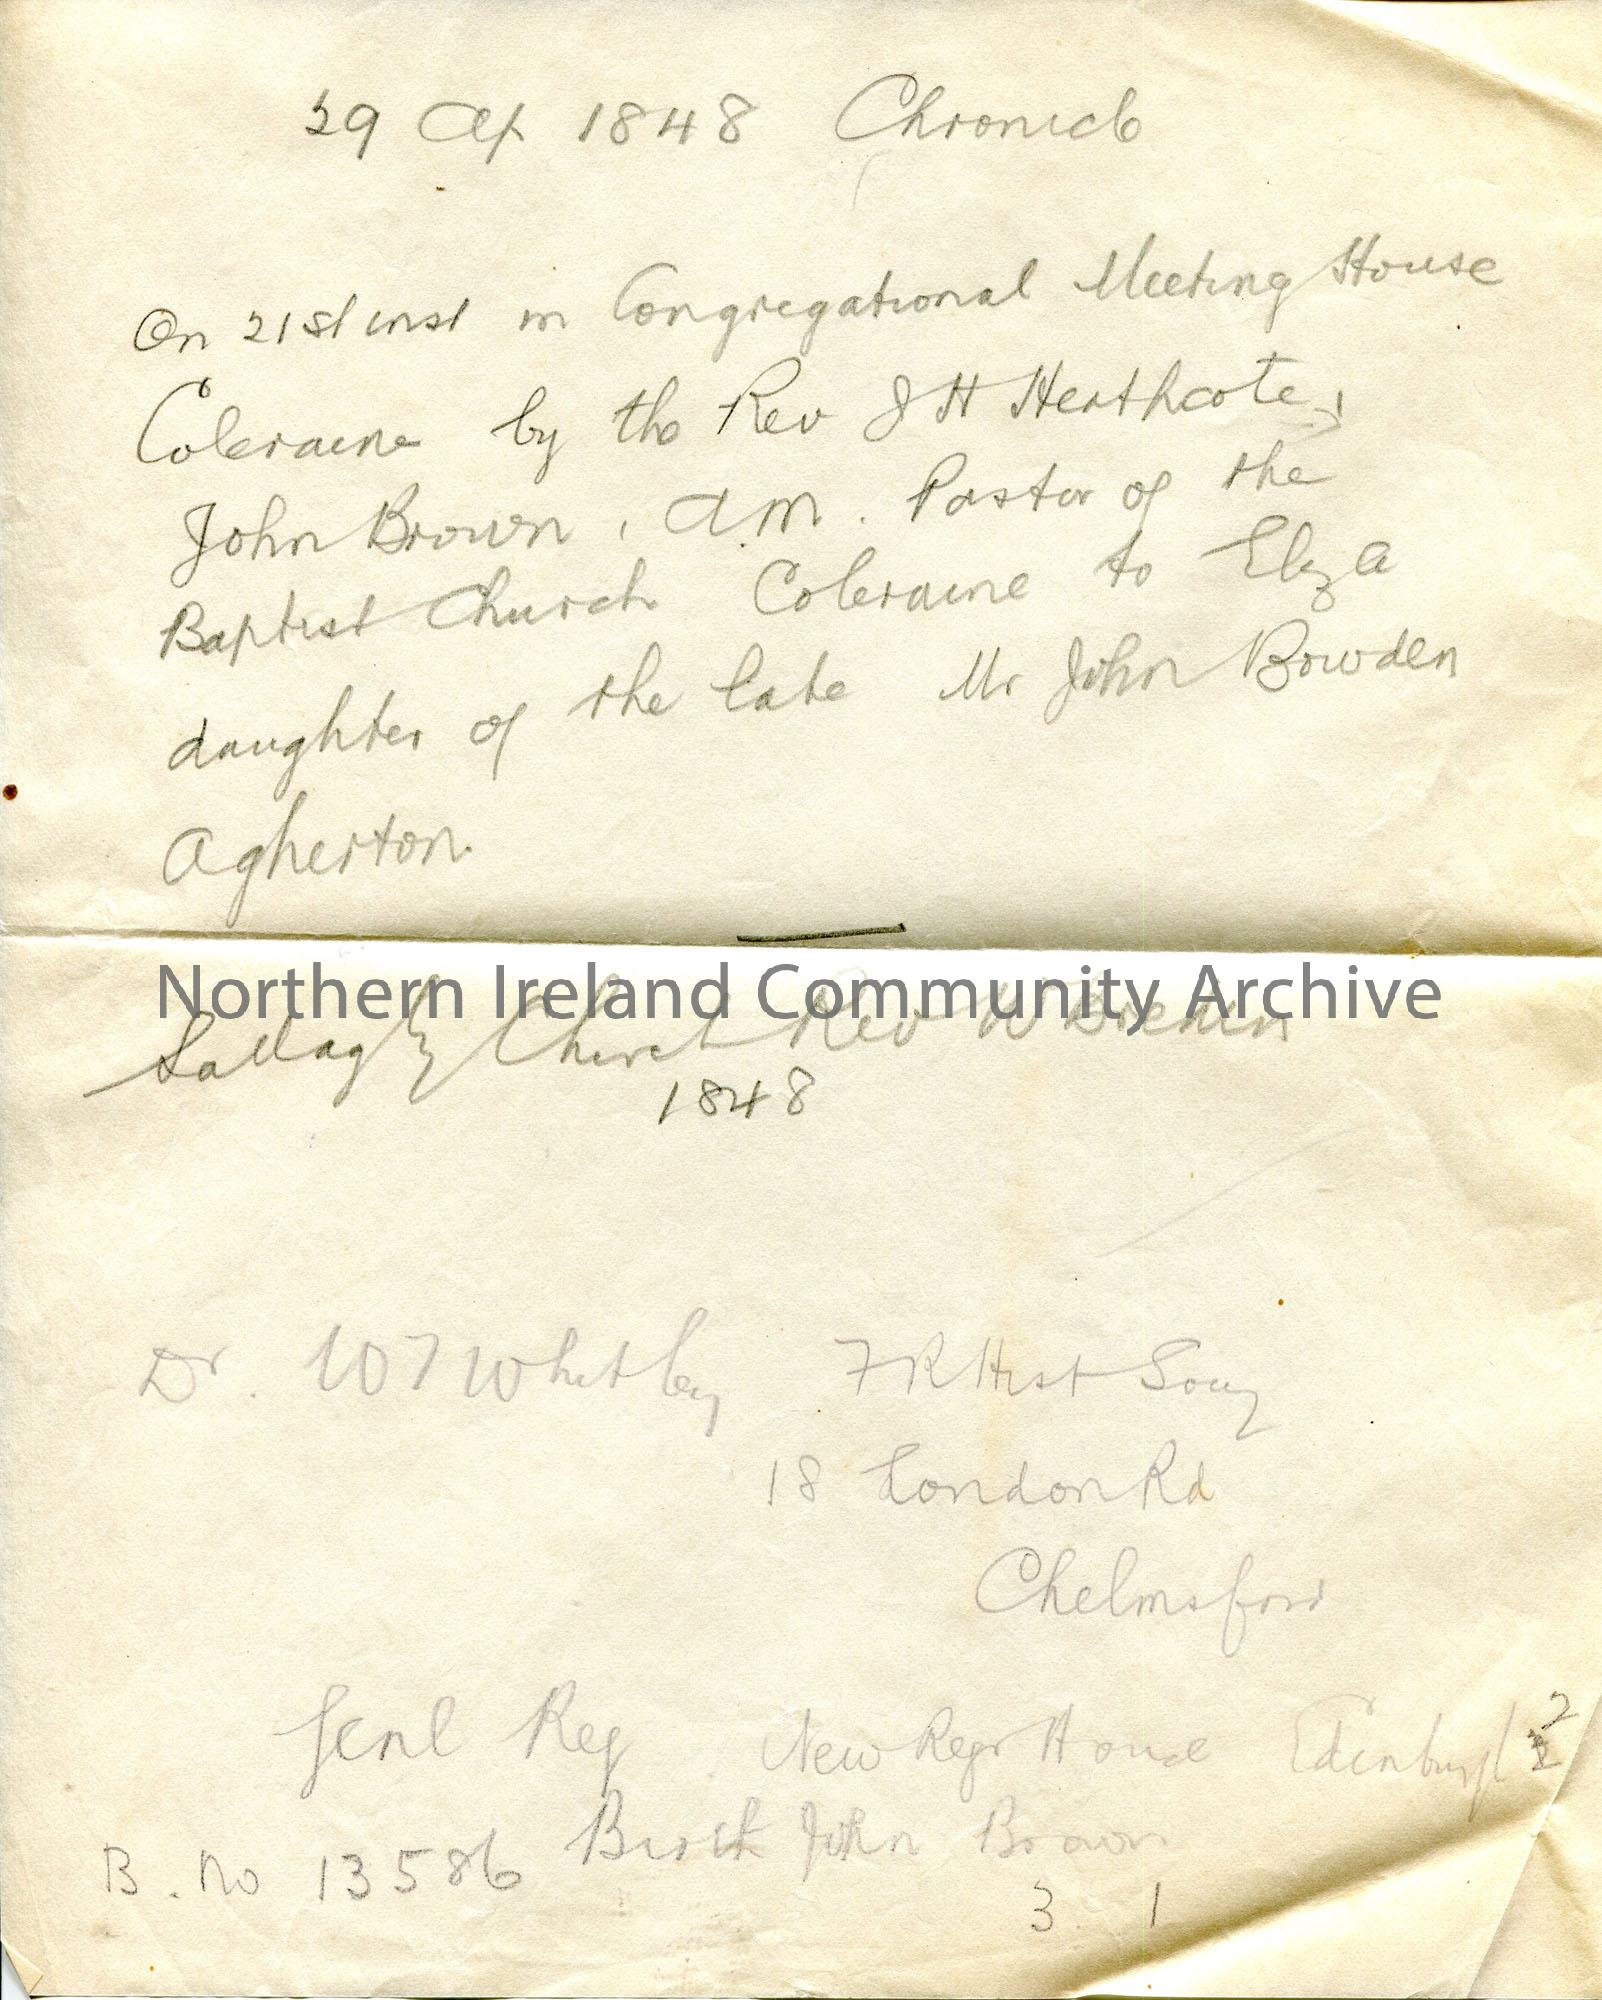 29 Ap 1848 Chronicle
On 21st inst in Congregational Meeting House
Coleraine by the Rev J H Heathcote,
John Brown, A.M. Pastor of the
Baptist Church Coleraine to Eliza
daughter of the late Mr John Bowden
Agherton
Northern Ireland Community Archive
Church Rev W
1848
Dr. W T Whitley F R Hist Socy
18 London Rd
Chelmsford
Genl Reg New Regr House Edinburgh 2
B. No 13586 Birth John Brown
3 1